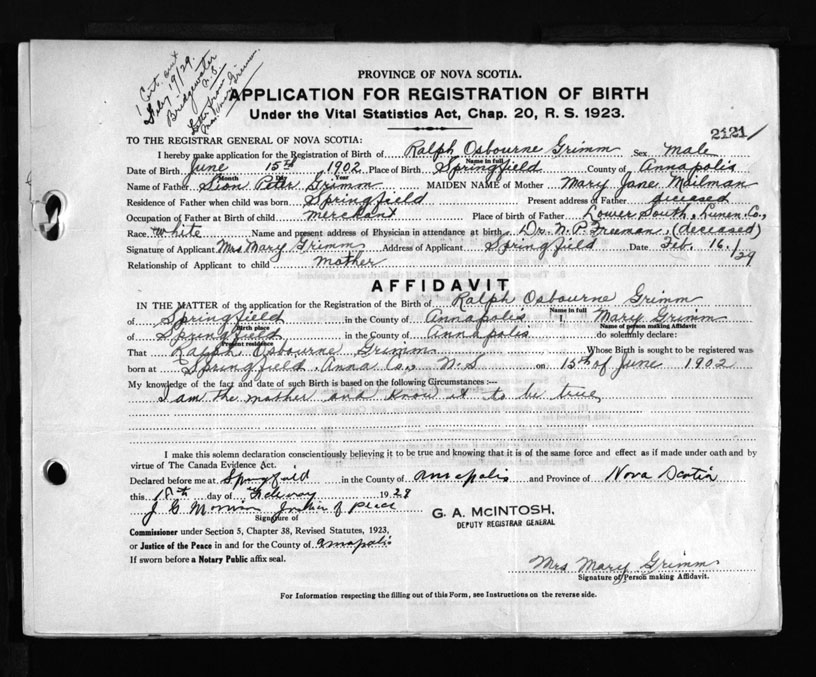 1 Cert. out
Feby 19/29.
Bridgewater
N.S.
Letter from
Mrs. Grimm.
PROVINCE OF NOVA SCOTIA.
APPLICATION FOR REGISTRATION OF BIRTH
Under the Vital Statistics Act, Chap. 20, R. S. 1923.
2121
TO THE REGISTRAR GENERAL OF NOVA SCOTIA:
I hereby make application for the Registration of Birth of Ralph Osbourne Grimm Sex Male
Name in full
Date of Birth June 15th 1902 Place of Birth Springfield County of Annapolis
Month Day Year
Name of Father Sion Peter Grimm MAIDEN NAME of Mother Mary Jane Mailman
Residence of Father when child was born Springfield Present address of Father deceased
Occupation of Father at Birth of child merchant Place of birth of Father Lower South, Lunen. Co.,
Race White Name and present address of Physician in attendance at birth Dr. N. P. Freeman, (deceased)
Signature of Applicant Mrs Mary Grimm Address of Applicant Springfield Date Feb. 16./29
Relationship of Applicant to child mother
AFFIDAVIT
IN THE MATTER of the application for the Registration of the Birth of Ralph Osbourne Grimm
Name in full
of Springfield in the County of Annapolis I, Mary Grimm
Birth place Name of person making Affidavit
of Springfield in the County of Annapolis do solemnly declare:
Present residence
That Ralph Osbourne Grimm Whose Birth is sought to be registered was
born at Springfield, Anna Co., N.S on 15th of June 1902
My knowledge of the fact and date of such Birth is based on the following Circumstances:—
I am the mother and know it to be true
I make this solemn declaration conscientiously believing it to be true and knowing that it is of the same force and effect as if made under oath and by
virtue of The Canada Evidence Act.
Declared before me at Springfield in the County of Annapolis and Province of Nova Scotia
this 18th day of February 1928
J G Morrison Justice of Peace
Signature of
G. A. McINTOSH,
DEPUTY REGISTRAR GENERAL
Commissioner under Section 5, Chapter 38, Revised Statutes, 1923,
or Justice of the Peace in and for the County of Annapolis
If sworn before a Notary Public affix seal.
Mrs Mary Grimm
Signature of Person making Affidavit.
For Information respecting the filling out of this Form, see Instructions on the reverse side.